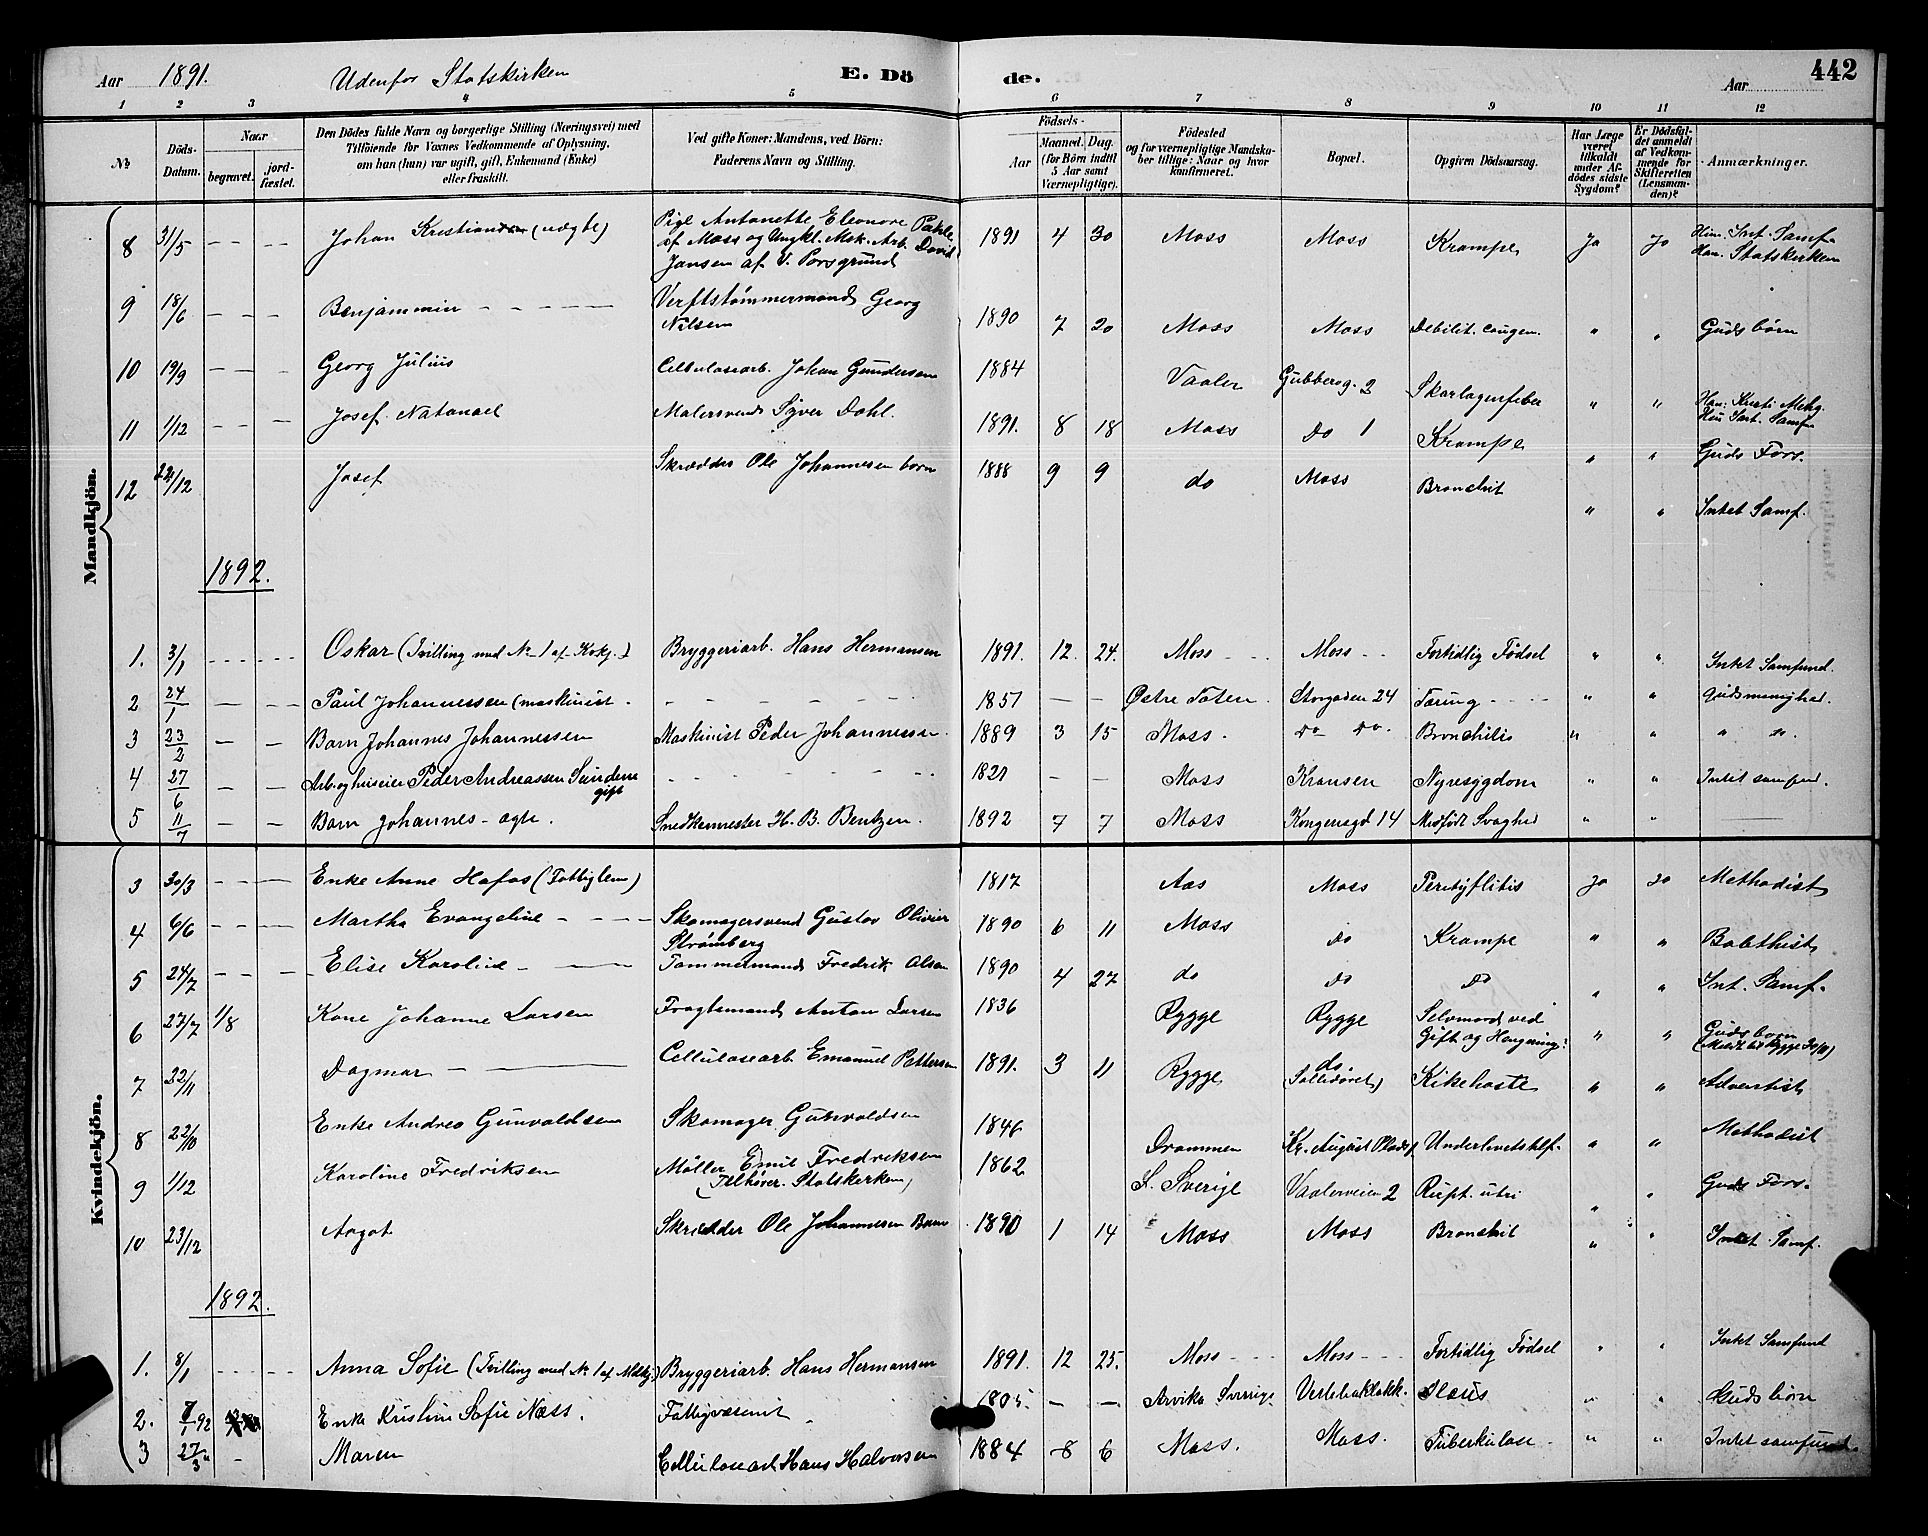 Aar 1891. Udenfor Statskirken E. Dö de. Aar 442
1 2 3 4 5 6 7 8 9 10 11 12
No Döds-Datum. Naar begravet. jordfæstet. Den Dödes fulde Navn og borgerlige Stilling (Næringsvei) med Tilföiende for Voxnes Vedkommende af Oplysning, om han (hun) var ugift, gift, Enkemand (Enke) eller fraskilt. Ved gifte Koner: Mandens, ved Börn: Faderens Navn og Stilling. Födsels- Aar Maaned. Dag. (for Börn indtil 5 Aar samt Værnepligtige). Födested og for værnepligtige Mandskaber tillige: Naar og hvor konfirmeret. Bopæl. Opgiven Dödsaarsag. Har Læge været tilkaldt under Afdödes sidste Sygdom? Er Dödsfaldet anmeldt af Vedkommende for Skifteretten (Lensmanden)? Anmærkninger.
Mandkjön.
8 31/5 - - - - Johan Kristian (uægte) Pige Antonette Eleonore af Moss og Ungkl. Msk. Arb. David Jansen af V. Porsgrund 1891 4 30 Moss Moss Krampe Ja Ja Hun. Int. Samf. Han. Statskirken
9 18/6 - - - Benjammin - - - Verftstømmermand Georg Nilsen 1890 7 20 Moss Moss Debilit. congen. " " Guds børn
10 19/9 - - - Georg Julius Cellulosearb. Johan Gundersen 1884 Vaaler Gubberog. 2 Skarlagensfeber " "
11 1/12 - - - Josef Natanael Malersvend Syver Dahl. 1891. 8 18 Moss Do 1 Krampe " " Hun Int. Samf.
12 22/12 Josef Skrædder Ole Johannesen barn 1888 9 9 do Moss Bronchit " " Guds Fors.
Intet Samf.
1892.
1. 3/1 - - - - Oskar (Tvilling med No 1 af Kvkj.) Bryggeriarb. Hans Hermansen 1891. 12. 24. Moss Moss Fortidlig Fødsel " " Intet Samfund.
2 24/1 - - - Paul Johannessen (maskinist - - - - 1857 — — Østre Toten Storgaden 24 Tæring " " Gudsmenighed.
3 23/2 - - Barn Johannes Johannessen Maskinist Peder Johannessen 1889 3 15 Moss. Do Do. Bronchitis " " " "
4 27/6 - - Arb. og huseier Peder Andreassen Sundene gift - - - - 1821 — — Moss Kransen Nyresygdom " " Intet samfund.
5 11/7 - - Barn Johannes - ægte. Snedkermester H. B. Bentzen. 1892 7 7 Moss Kongensgd 14 Medfødt Svaghed " " —
Kvindekjön.
3 30/3 - - - Enke Anne Hafos (Fattiglem) 1817 Aas Moss Perityflitis Ja Ja Methodist
4 6/6 - - - Martha Evangeline - - - Skomagersvend Gustav Olivier Strømberg 1890 6 11 Moss do Krampe " "
5 24/7 - - - Elise Karoline - — Tømmermand Fredrik Olsen 1890 4 27 do do Do " " Int. Samf.
6 27/7 1/8 Kone Johanne Larsen Fragtemand Anton Larsen 1836 Rygge Rygge Selvmord ved Gift og Hengning " " Guds børn
7 22/11 Dagmar - — Cellulosearb. Emanuel Pettersen 1891. 3 11 Rygge do Kikehoste " " Adventist
8 22/10 Enke Andrea Gunvaldsen Skomager Gunvaldsen 1846 Drammen Kr. August Plads Underlivets " " Methodist
9 1/12 Karoline Fredriksen Møller Emil Fredriksen (Tilhører Statskirken) 1862 S. Sverige Vaalerveien 2 Rupt. utri " " Guds Fors.
10 23/12 Aagot Skrædder Ole Johannesen Barn 1890 1 14 Moss Moss Bronchit " " Intet Samf.
1892.
1. 8/1 - - - - Anna Sofie (Tvilling med No 1 af Mdkj.) Bryggeriarb. Hans Hermansen 1891. 12 25. Moss Moss Fortidlig Fødsel " " Intet Samfund
2. 92 Enke Kristine Sofie Næss. Fattigvæsenet 1805. — — Arvika Sverrige. " " Guds børn
3 27/3 - Maren Cellulosearb Hans Halvorsen 1884 8 6 Moss. Moss. Tuberkulose " " Intet samfund.